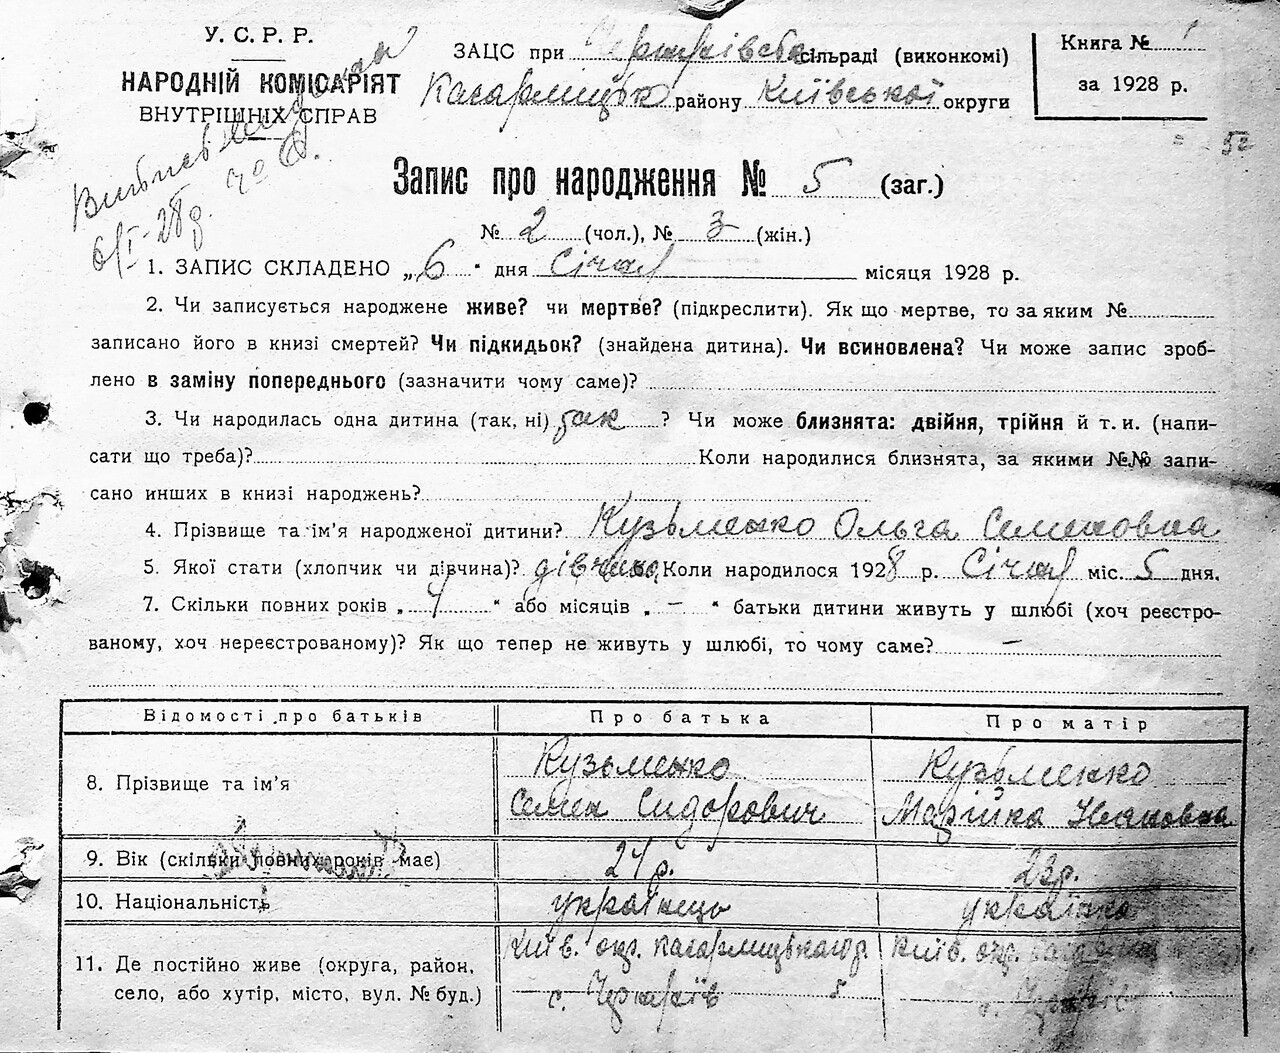 У. С. Р. Р.
НАРОДНІЙ КОМІСАРІЯТ
ВНУТРІШНІХ СПРАВ
ЗАЦС при сільраді (виконкомі)
Кагарлицьк району Київської округи
Книга № 1
за 1928 р.
52
6/I-28 р.
Запис про народження № 5 (заг.)
№ 2 (чол.), № 3 (жін.)
1. ЗАПИС СКЛАДЕНО „6" дня Січня місяця 1928 р.
2. Чи записується народжене живе? чи мертве? (підкреслити). Як що мертве, то за яким №
записано його в книзі смертей? Чи підкидьок? (знайдена дитина). Чи всиновлена? Чи може запис зроб-
лено в заміну попереднього (зазначити чому саме)?
3. Чи народилась одна дитина (так, ні) так ? Чи може близнята: двійня, трійня й т. и. (напи-
сати що треба)? Коли народилися близнята, за якими №№ запи-
сано инших в книзі народжень?
4. Прізвище та ім'я народженої дитини? Кузьменко Ольга Семеновна
5. Якої стати (хлопчик чи дівчина)? дівчина, Коли народилося 1928 р. Січня міс. 5 дня.
7. Скільки повних років „ 4 " або місяців „ – " батьки дитини живуть у шлюбі (хоч реєстро-
ваному, хоч нереєстрованому)? Як що тепер не живуть у шлюбі, то чому саме? –
Відомості про батьків Про батька Про матір
8. Прізвище та ім'я Кузьменко Семен Сидорович Кузьменко Марійка Івановна
9. Вік (скільки повних років має) 24 р. 22 р.
10. Національність українець українка
11. Де постійно живе (округа, район, Київ. окр. Кагарлицького р. Київ. окр.
село, або хутір, місто, вул. № буд.) с.